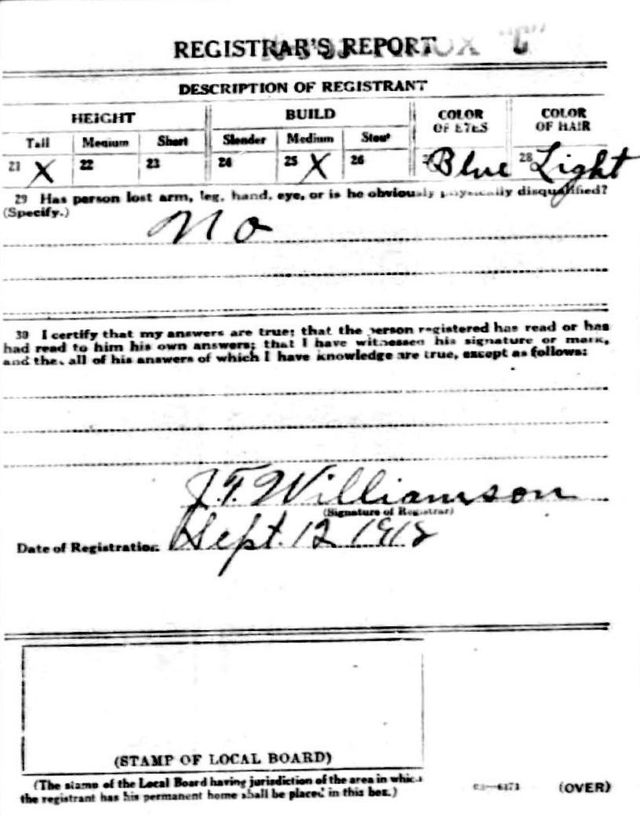 REGISTRAR'S REPORT
DESCRIPTION OF REGISTRANT
HEIGHT BUILD COLOR OF EYES COLOR OF HAIR
Tall Medium Short Slender Medium Stout
21 X 22 23 24 25 X 26 Blue 28 Light
29 Has person lost arm, leg, hand, eye, or is he obviously physically disqualified?
(Specify.)
No
30 I certify that my answers are true; that the person registered has read or has
had read to him his own answers; that I have witnessed his signature or mark,
and that all of his answers of which I have knowledge are true, except as follows:
J. T. Williamson
(Signature of Registrar)
Date of Registration Sept. 12 1918
(STAMP OF LOCAL BOARD)
(The stamp of the Local Board having jurisdiction of the area in which
the registrant has his permanent home shall be placed in this box.)
(OVER)